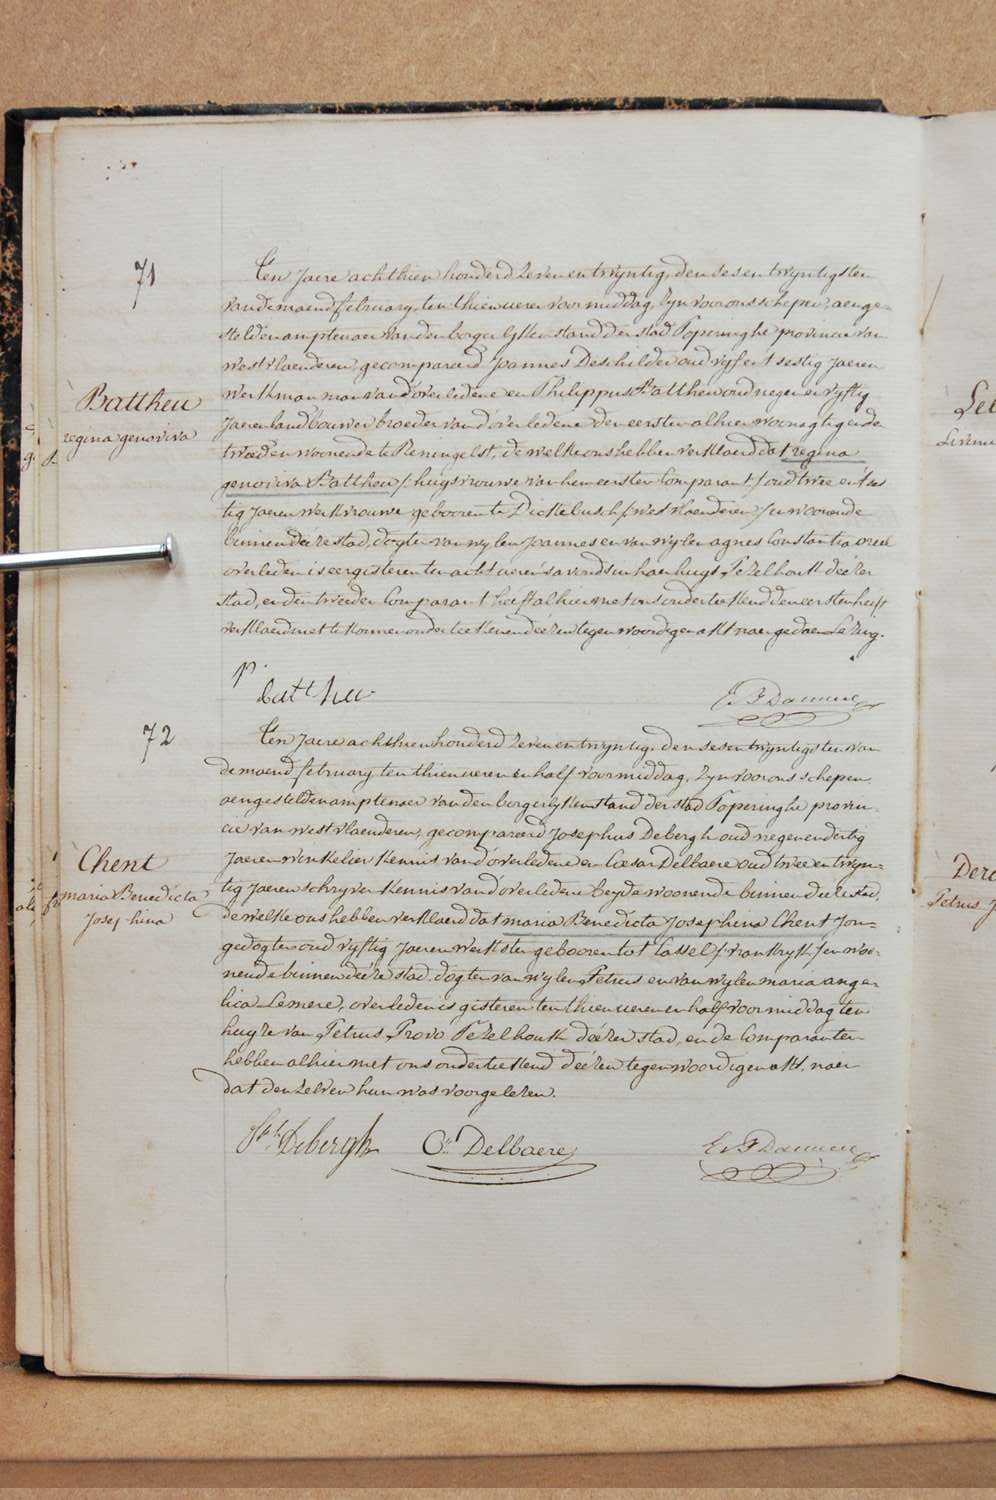 71
Ten Jaere achthien honderd zeven en twyntig, den ses en twyntigsten
van de maend february, ten thien ueren voormiddag, zyn voor ons schepen, aenge-
stelden amptenaer van den borgerlyken stand der stad Poperinghe provincie van
westvlaenderen, gecompareerd Joannes Deschilder oud vyf en t'sestig Jaeren
werkman man van d'overledene en Philippus Battheu oud negen en vyftig
Jaeren landbouwer broeder van d'overledene den eersten alhier woonagtig en de
tweeden woonende te Reningelst, de welke ons hebben verklaerd dat regina
genoviva Battheu /: huysvrouwe van hem eersten Comparant :/ oud twee en t'ses
tig Jaeren werkvrouwe gebooren te Dickebusch /:westvlaenderen:/ en woonende
binnen deeze stad, dogter van wylen Joannes en van wylen agnes Constantia
overleden is eergisteren ten acht ueren s'avonds in haer huys Pezelhoek deezer
stad, en den tweeden Comparant heeft alhier met ons onderteekend den eersten heeft
verklaerd niet te konnen onderteekenen deezen tegenwoordigen akt naer gedaen Lezing.
Battheu
regina genoviva
P.
battheu
72
Ten Jaere achthien honderd zeven en twyntig, den ses en twyntigsten van
de maend february ten thien ueren en half voormiddag, zyn voor ons schepen
aengestelden amptenaer van den borgerlyken stand der stad Poperinghe provin-
cie van westvlaenderen, gecompareerd Josephus Debergh oud negen en dertig
Jaeren winkelier kennis van d'overledene en Cæsar Delbaere oud twee en twyn-
tig Jaeren schryver kennis van d'overledene beyde woonende binnen deeze stad,
de welke ons hebben verklaerd dat maria Benedicta Josephina Chent Jon-
gedogter oud vyftig Jaeren werkster gebooren tot Cassel /:vrankryk:/ en woo-
nende binnen deeze stad. dogter van wylen Petrus en van wylen maria ange-
lica Lemere, overleden is gisteren ten thien ueren en half voormiddag ten
huyze van Petrus Provo Pezelhoek deezer stad, en de Comparanten
hebben alhier met ons onderteekend deezen tegenwoordigen akt, naer
dat den zelven hun was voorgelezen.
Chent
maria Benedicta
Josephina
Debergh Delbaere